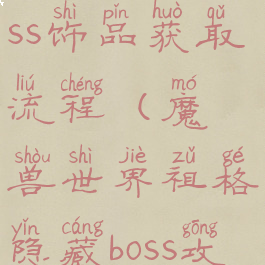 shì pǐn huò qǔ
ss饰品获取
liú chéng mó
流程(魔
shòu shì jiè zǔ gé
兽世界祖格
yǐn cáng gōng
隐藏boss攻